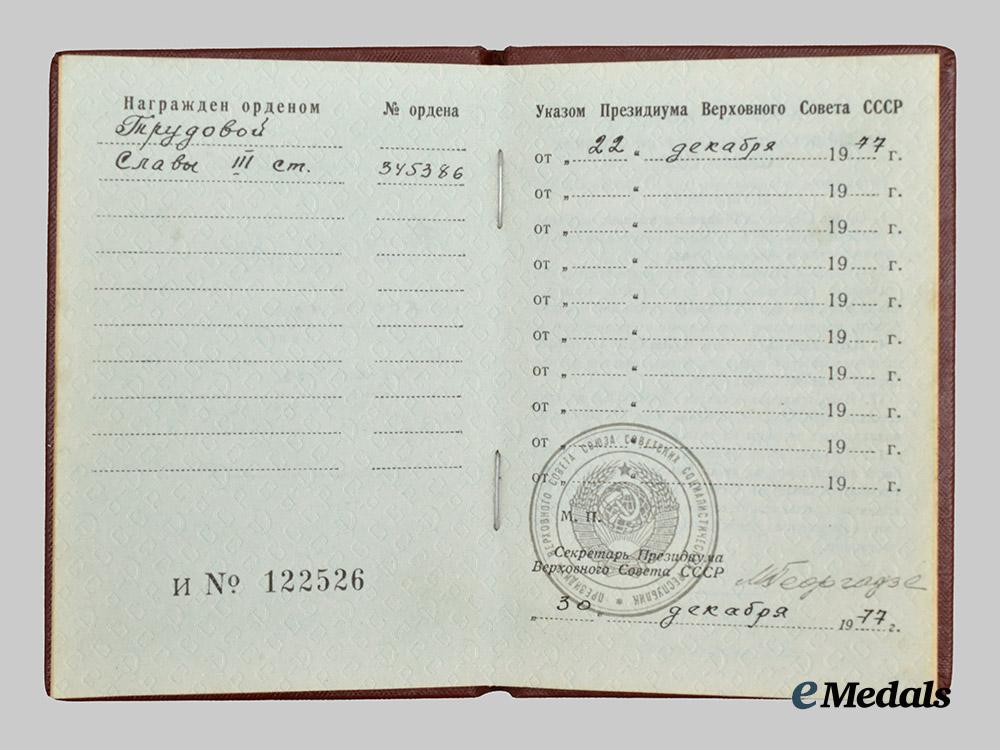 Награжден орденом
№ ордена
Трудовой
Славы III ст.
345386
И № 122526
Указом Президиума Верховного Совета СССР
от „ 22 “ декабря 1977 г.
от „ “ 19 г.
от „ “ 19 г.
от „ “ 19 г.
от „ “ 19 г.
от „ “ 19 г.
от „ “ 19 г.
от „ “ 19 г.
от „ “ 19 г.
от „ “ 19 г.
ПРЕЗИДИУМ ВЕРХОВНОГО СОВЕТА СОЮЗА СОВЕТСКИХ СОЦИАЛИСТИЧЕСКИХ РЕСПУБЛИК
М. П.
Секретарь Президиума
Верховного Совета СССР
МГеоргадзе
„ 30 „ декабря 1977 г.
eMedals